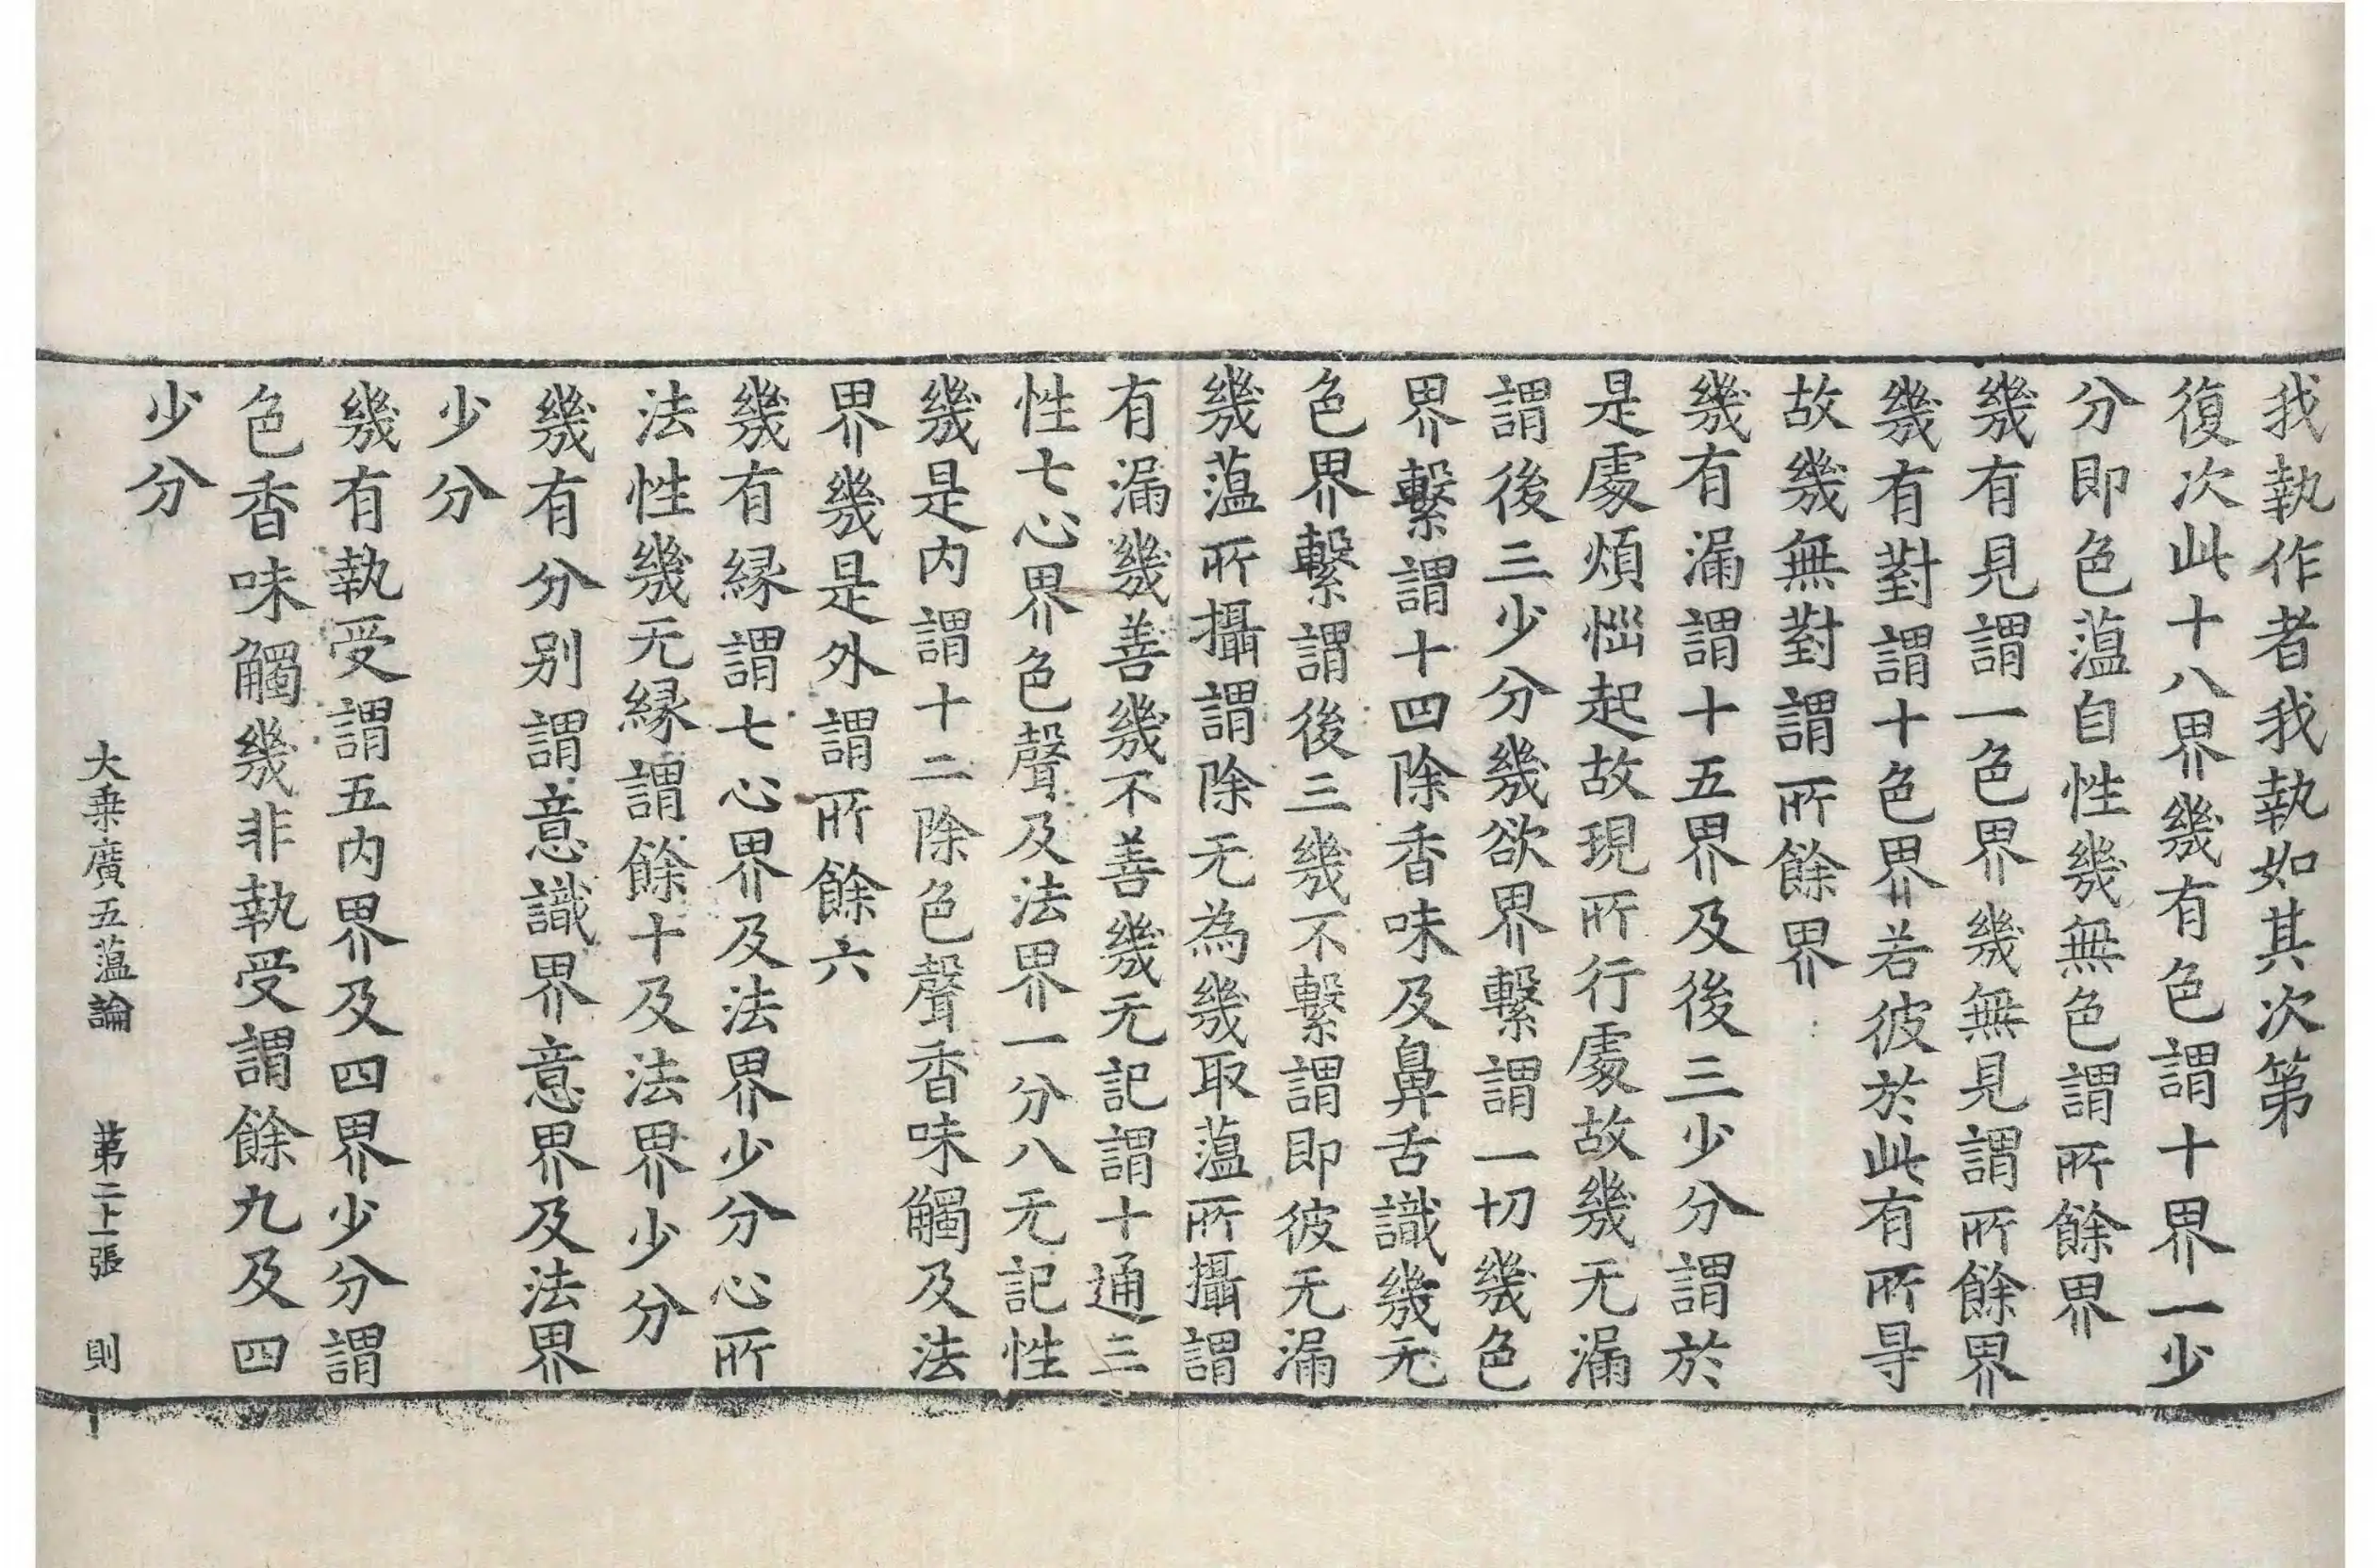 我執作者我執如其次第
復次此十八界幾有色謂十界一少
分即色薀自性幾無色謂所餘界
幾有見謂一色界幾無見謂所餘界
幾有對謂十色界若彼於此有所㝵
故幾無對謂所餘界
幾有漏謂十五界及後三少分謂於
是處煩惱起故現所行處故幾无漏
謂後三少分幾欲界繫謂一切幾色
界繫謂十四除香味及鼻舌識幾无
色界繫謂後三幾不繫謂即彼无漏
幾薀所攝謂除无為幾取薀所攝謂
有漏幾善幾不善幾无記謂十通三
性七心界色聲及法界一分八无記性
幾是内謂十二除色聲香味觸及法
界幾是外謂所餘六
幾有縁謂七心界及法界少分心所
法性幾无縁謂餘十及法界少分
幾有分别謂意識界意界及法界
少分
幾有執受謂五内界及四界少分謂
色香味觸幾非執受謂餘九及四
少分
大乗廣五薀論 第二十一張 則